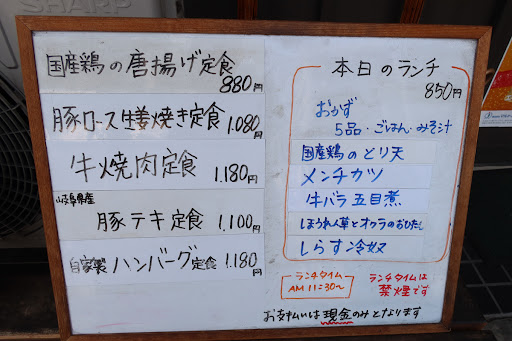 SHARP
国産鶏の唐揚げ定食
880円
豚ロース生姜焼き定食 1.080円
牛焼肉定食 1.180円
岐阜県産
豚テキ定食 1.100円
自家製ハンバーグ定食 1.180円
本日のランチ
850円
おかず
5品・ごはん・みそ汁
国産鶏のとり天
メンチカツ
牛バラ五目煮
ほうれん草とオクラのおひたし
しらす冷奴
ランチタイム
AM 11:30〜
ランチタイムは
禁煙です
お支払いは現金のみとなります